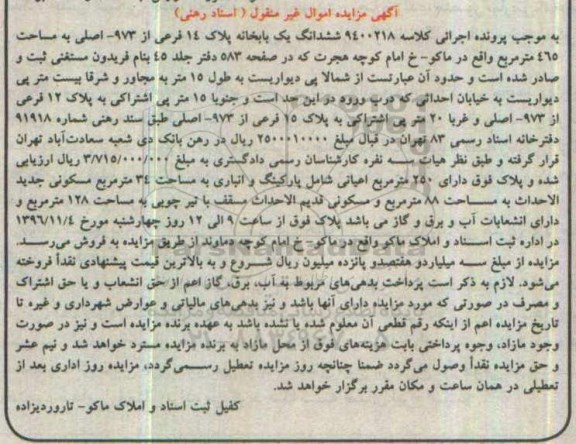 آگهی مزایده اموال غیر منقول ( اسناد رهنی)
به موجب پرونده اجرائی کلاسه ۹۴۰۰۲۱۸ ششدانگ یک بابخانه پلاک ۱۴ فرعی از ۹۷۳- اصلی به مساحت
۴۶۵ مترمربع واقع در ماکو- خ امام کوچه هجرت که در صفحه ۵۸۳ دفتر جلد ۴۵ بنام فریدون مستغنی ثبت و
صادر شده است و حدود آن عبارتست از شمالا پی دیواریست به طول ۱۵ متر به مجاور و شرقا بیست متر پی
دیواریست به خیابان احداثی که درب ورود در این حد است و جنوبا ۱۵ متر پی اشتراکی به پلاک ۱۲ فرعی
از ۹۷۳- اصلی و غربا ۲۰ متر پی اشتراکی به پلاک ۱۵ فرعی از ۹۷۳- اصلی طبق سند رهنی شماره ۹۱۹۱۸
دفترخانه اسناد رسمی ۸۳ تهران در قبال مبلغ ۲۵۰۰۰۱۰۰۰۰ ریال در رهن بانک دی شعبه سعادت‌آباد تهران
قرار گرفته و طبق نظر هیات سه نفره کارشناسان رسمی دادگستری به مبلغ ۳/۷۱۵/۰۰۰/۰۰۰ ریال ارزیابی
شده و پلاک فوق دارای ۲۵۰ مترمربع اعیانی شامل پارکینگ و انباری به مساحت ۳۴ مترمربع مسکونی جدید
الاحداث به مساحت ۸۸ مترمربع و مسکونی قدیم الاحداث مسقف با تیر چوبی به مساحت ۱۲۸ مترمربع و
دارای انشعابات آب و برق و گاز می باشد پلاک فوق از ساعت ۹ الی ۱۲ روز چهارشنبه مورخ ۱۳۹۶/۱۱/۴
در اداره ثبت اسناد و املاک ماکو واقع در ماکو- خ امام کوچه دماوند از طریق مزایده به فروش می‌رسد.
مزایده از مبلغ سه میلیاردو هفتصدو پانزده میلیون ریال شروع و به بالاترین قیمت پیشنهادی نقداً فروخته
می‌شود. لازم به ذکر است پرداخت بدهی‌های مربوط به آب، برق، گاز اعم از حق انشعاب و یا حق اشتراک
و مصرف در صورتی که مورد مزایده دارای آنها باشد و نیز بدهی‌های مالیاتی و عوارض شهرداری و غیره تا
تاریخ مزایده اعم از اینکه رقم قطعی آن معلوم شده یا نشده باشد به عهده برنده مزایده است و نیز در صورت
وجود مازاد، وجوه پرداختی بابت هزینه‌های فوق از محل مازاد به برنده مزایده مسترد خواهد شد و نیم عشر
و حق مزایده نقداً وصول می‌گردد ضمنا چنانچه روز مزایده تعطیل رسمی‌گردد، مزایده روز اداری بعد از
تعطیلی در همان ساعت و مکان مقرر برگزار خواهد شد.
کفیل ثبت اسناد و املاک ماکو- تاروردیزاده